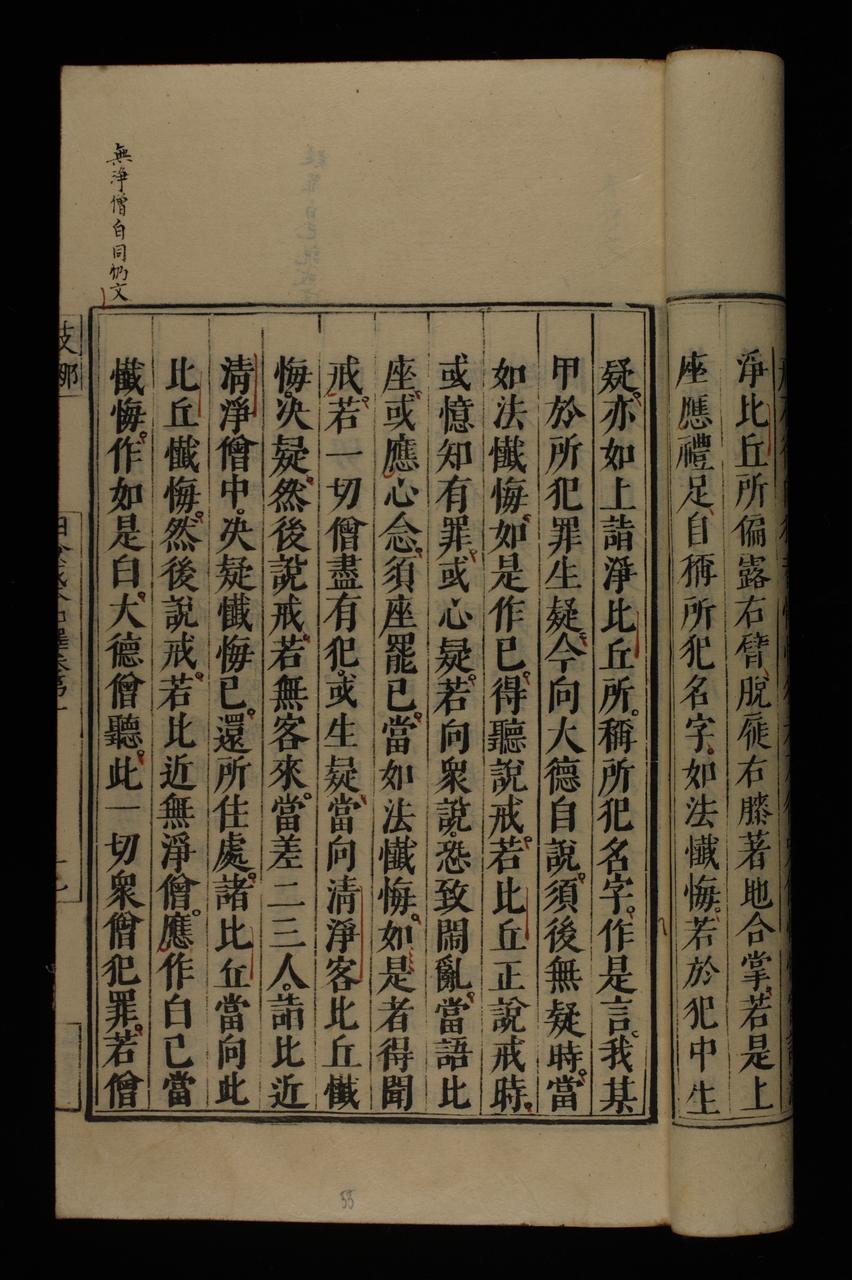 淨比丘所偏露右臂脫屣右膝著地合掌若是上
座應禮足自稱所犯名字如法懺悔若於犯中生
疑亦如上詣淨比丘所稱所犯名字作是言我某
甲於所犯罪生疑今向大德自說須後無疑時當
如法懺悔如是作已得聽說戒若比丘正說戒時
或憶知有罪或心疑若向衆說恐致鬧亂當語比
座或應心念須座罷已當如法懺悔如是者得聞
戒若一切僧盡有犯或生疑當向清淨客比丘懺
悔决疑然後說戒若無客來當差二三人詣比近
清淨僧中决疑懺悔已還所住處諸比丘當向此
比丘懺悔然後說戒若比近無淨僧應作白已當
懺悔作如是白大德僧聽此一切衆僧犯罪若僧
無淨僧白同前文
支那
33